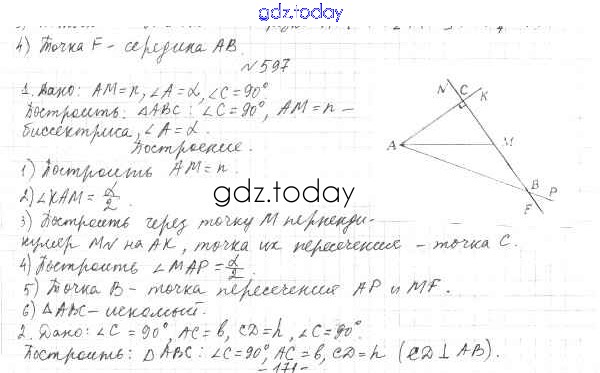 gdz.today
4) Точка F - середина AB.
№597
1. Дано: AM = n, ∠A = α, ∠C = 90°.
Построить: △ABC : ∠C = 90°, AM = n -
биссектриса, ∠A = α.
Построение.
1) Построить AM = n.
2) ∠KAM = α/2.
3) Построить через точку M перпенди-
куляр MN на AK, точка их пересечения - точка C.
4) Построить ∠MAP = α/2.
5) Точка B - точка пересечения AP и MF.
6) △ABC - искомый.
2. Дано: ∠C = 90°, AC = b, CD = h, ∠C = 90°.
Построить: △ABC : ∠C = 90°, AC = b, CD = h (CD ⊥ AB).
- 171 -
N C K
A M
B P
F
gdz.today
gdz.today